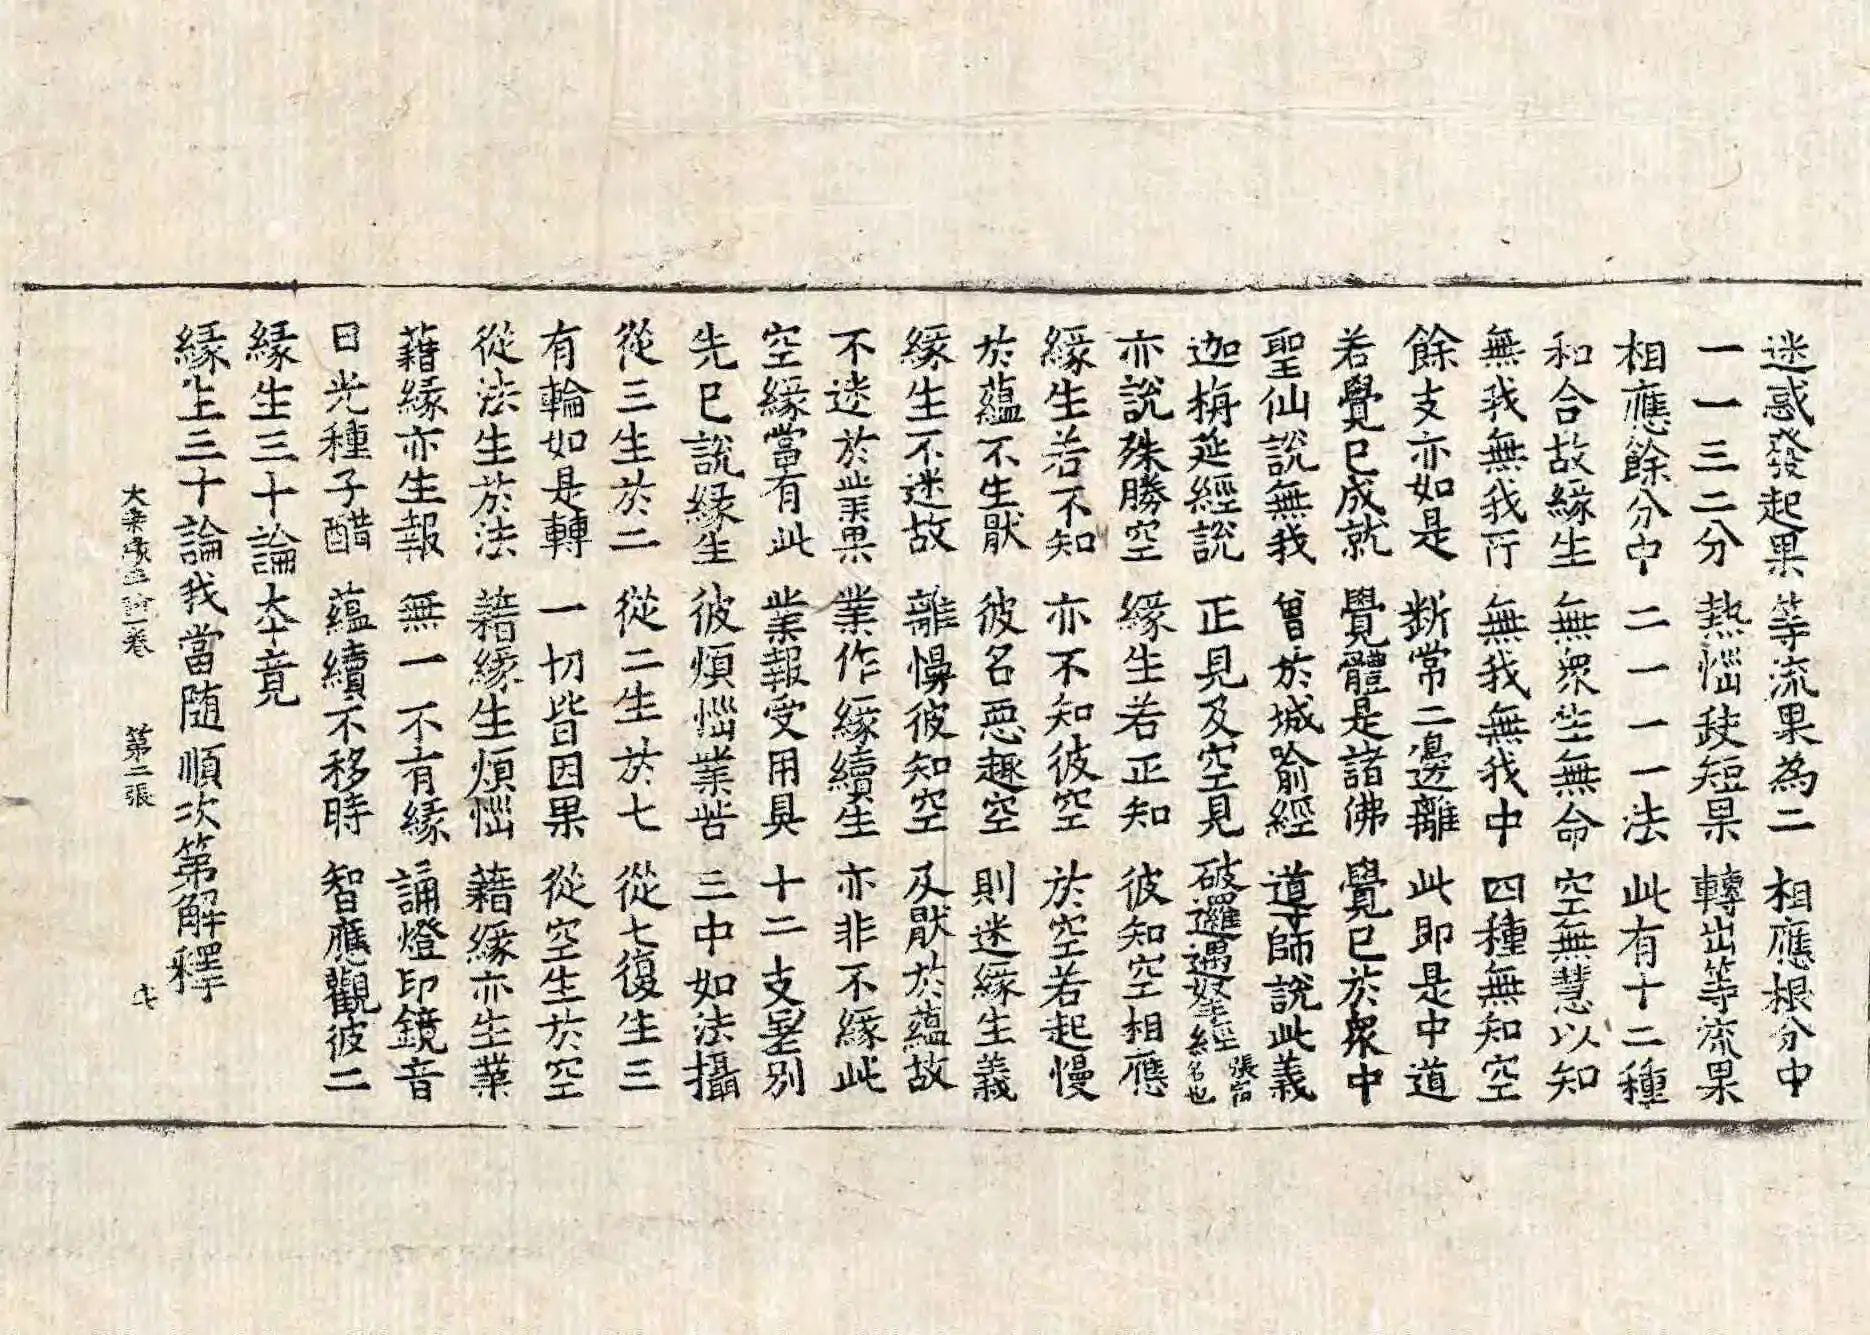 迷惑發起果 等流果為二 相應根分中
一一三二分 熱惱𡙇短果 轉出等流果
相應餘分中 二一一一法 此有十二種
和合故緣生 無衆生無命 空無慧以知
無我無我所 無我無我中 四種無知空
餘支亦如是 断常二邊離 此即是中道
若覺已成就 覺體是諸佛 覺已於衆中
聖仙說無我 曾於城喻經 導師說此義
迦栴延經說 正見及空見 破邏遇拏經 張宿名也
亦說殊勝空 緣生若正知 彼知空相應
緣生若不知 亦不知彼空 於空若起慢
於蘊不生猒 彼名惡趣空 則迷緣生義
緣生不迷故 離慢彼知空 及猒於蘊故
不迷於業果 業作緣續生 亦非不緣此
空緣當有此 業報受用具 十二支別
先已說緣生 彼煩惱業苦 三中如法攝
從三生於二 從二生於七 從七復生三
有輪如是轉 一切皆因果 從空生於空
從法生於法 藉緣生煩惱 藉緣亦生業
藉緣亦生報 無一不有緣 誦燈印鏡音
日光種子醋 蘊續不移時 智應觀彼二
緣生三十論本竟
緣生三十論我當随順次第解釋
大乘緣生論一卷 第二張